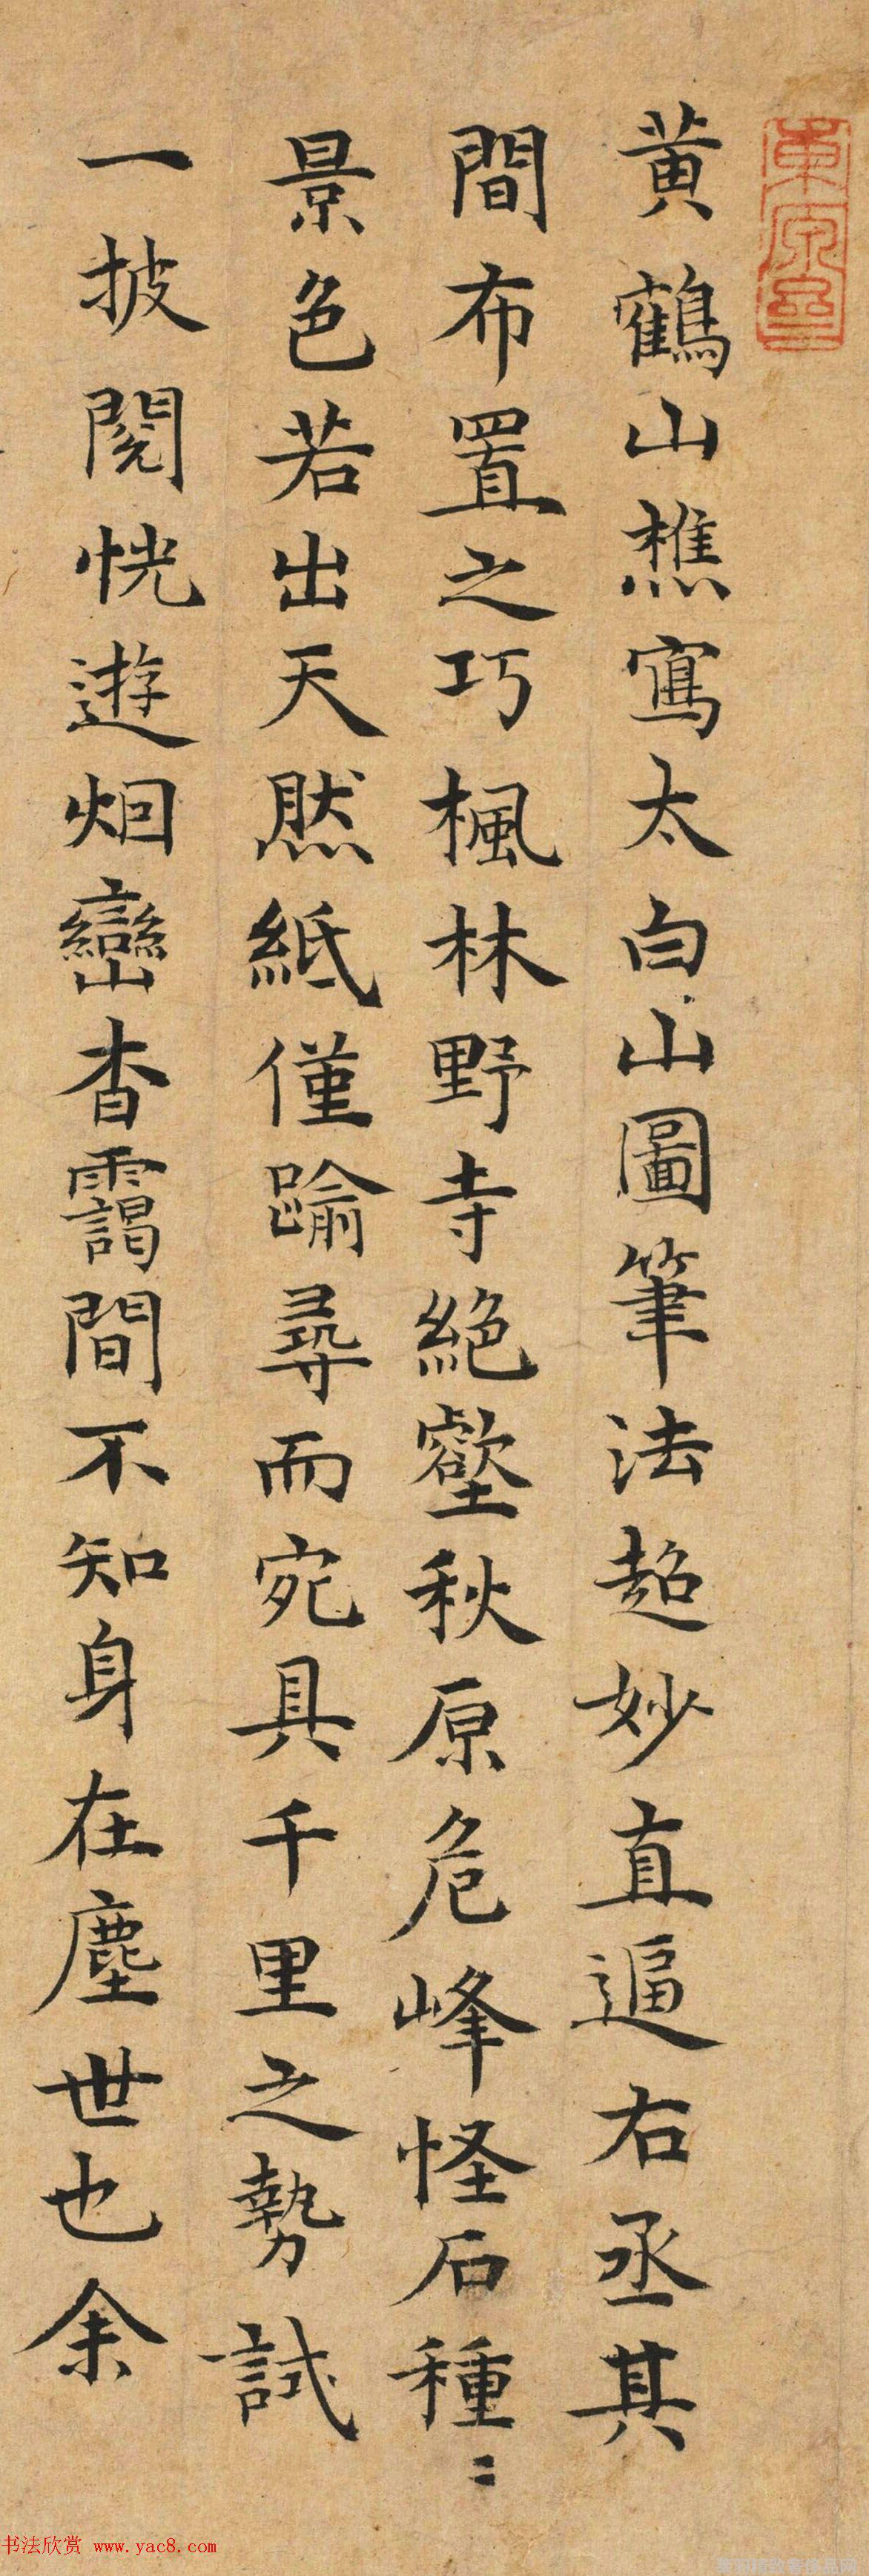 黄鶴山樵寫太白山圖筆法超妙直逼右丞其
間布置之巧楓林野寺絕壑秋原危峰怪石種〻
景色若出天然紙僅踰尋而宛具千里之勢試
一披閱恍遊烟巒杳靄間不知身在塵世也余
书法欣赏 www.yac8.com